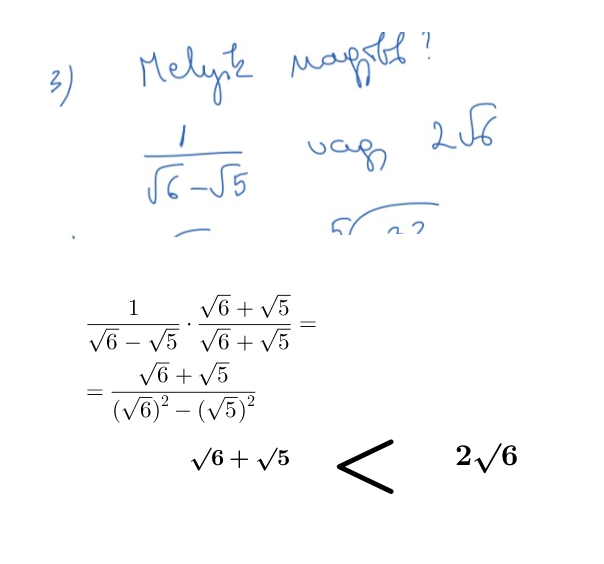 3) Melyik nagyobb?
1/(√6-√5) vagy 2√6
1/(√6 − √5) · (√6 + √5)/(√6 + √5) =
= (√6 + √5)/((√6)² − (√5)²)
√6 + √5 < 2√6